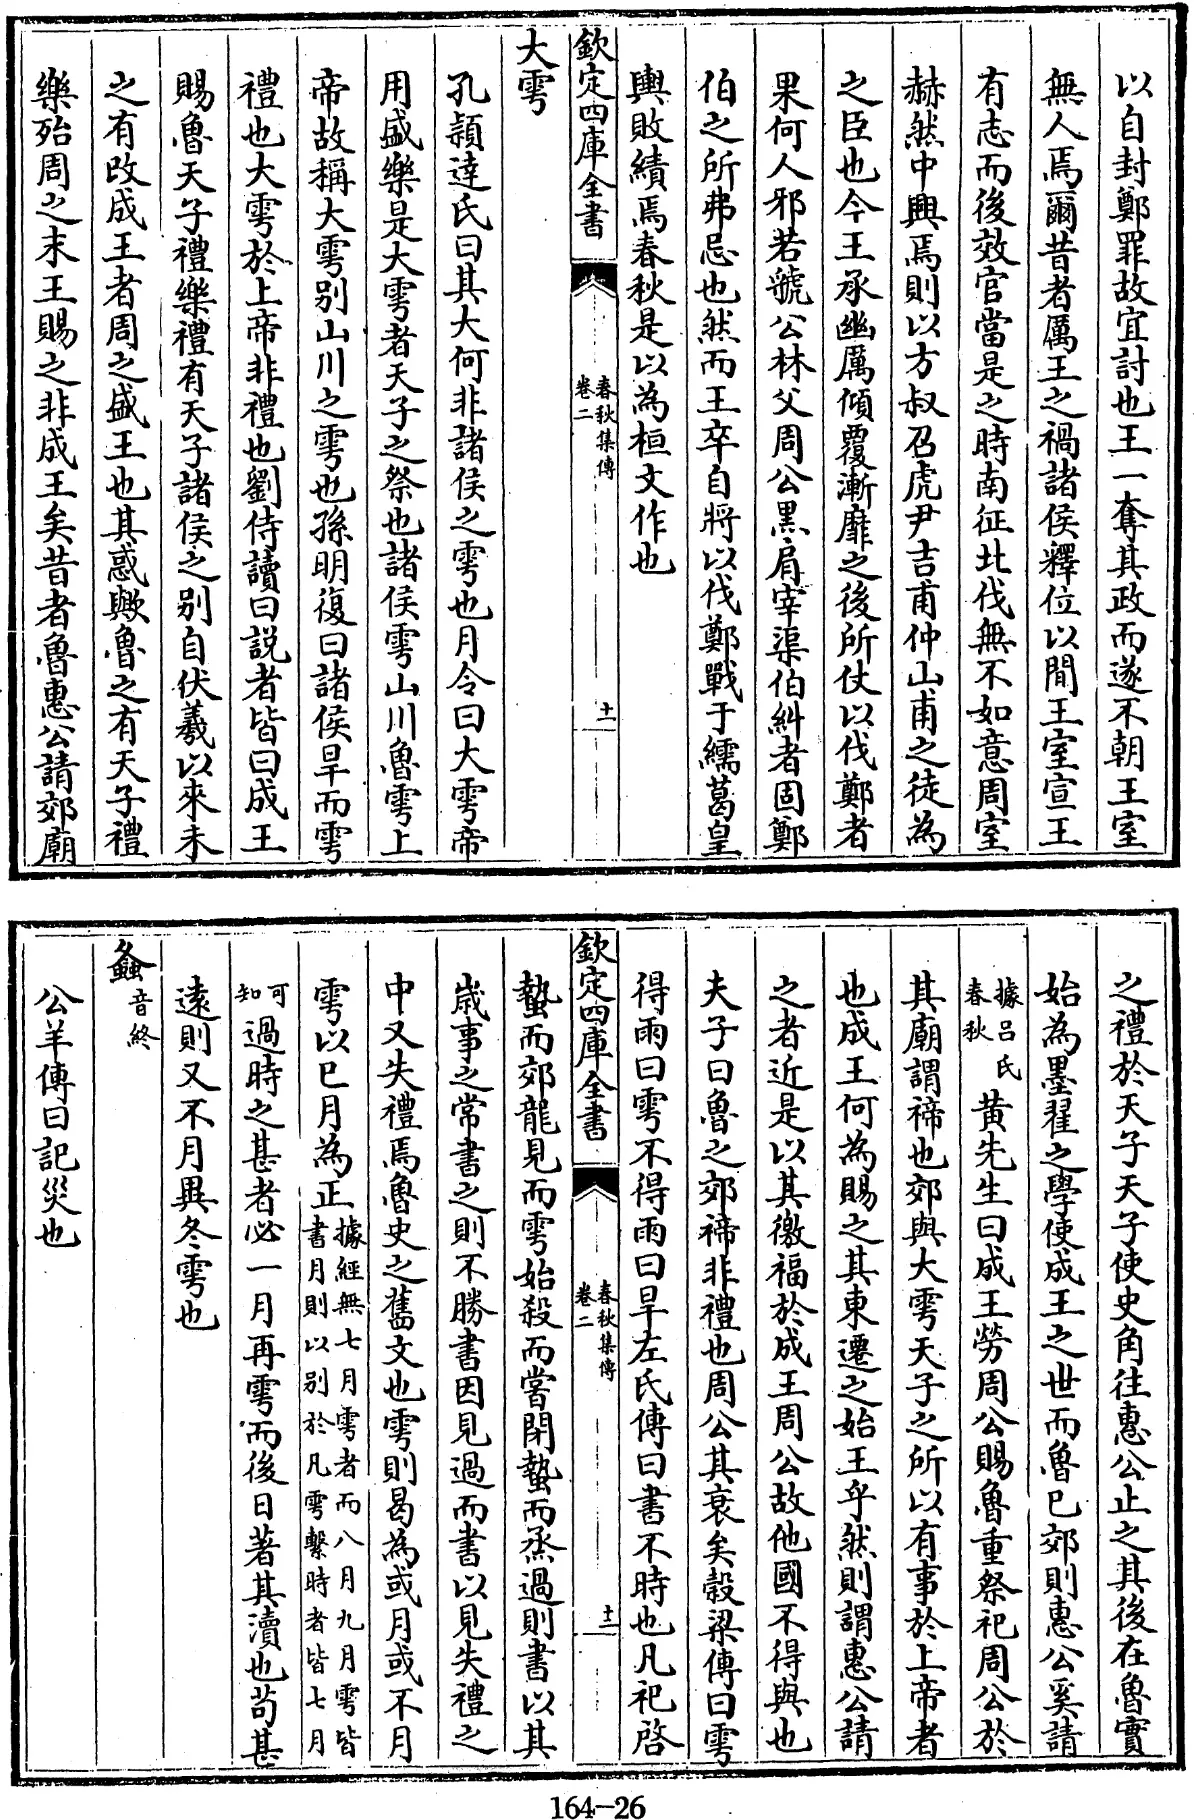 以自封鄭罪故宜討也王一奪其政而遂不朝王室
無人焉爾昔者厲王之禍諸侯釋位以間王室宣王
有志而後效官當是之時南征北伐無不如意周室
赫然中興焉則以方叔召虎尹吉甫仲山甫之徒為
之臣也今王承幽厲傾覆漸靡之後所仗以伐鄭者
果何人邪若虢公林父周公黒肩宰渠伯糾者固鄭
伯之所弗忌也然而王卒自將以伐鄭戰于繻葛皇
輿敗績焉春秋是以為桓文作也
欽定四庫全書
春秋集傳
卷二
十一
大雩
孔穎達氏曰其大何非諸侯之雩也月令曰大雩帝
用盛樂是大雩者天子之祭也諸侯雩山川魯雩上
帝故稱大雩别山川之雩也孫明復曰諸侯旱而雩
禮也大雩於上帝非禮也劉侍讀曰説者皆曰成王
賜魯天子禮樂禮有天子諸侯之别自伏羲以來未
之有改成王者周之盛王也其惑歟魯之有天子禮
樂殆周之末王賜之非成王矣昔者魯惠公請郊廟
之禮於天子天子使史角往惠公止之其後在魯實
始為墨翟之學使成王之世而魯已郊則惠公奚請
據吕氏
春秋
黄先生曰成王勞周公賜魯重祭祀周公於
其廟謂禘也郊與大雩天子之所以有事於上帝者
也成王何為賜之其東遷之始王乎然則謂惠公請
之者近是以其徼福於成王周公故他國不得與也
夫子曰魯之郊禘非禮也周公其衰矣榖梁傳曰雩
得雨曰雩不得雨曰旱左氏傳曰書不時也凡祀啓
欽定四庫全書
春秋集傳
卷二
十二
蟄而郊龍見而雩始殺而嘗閉蟄而烝過則書以其
嵗事之常書之則不勝書因見過而書以見失禮之
中又失禮焉魯史之舊文也雩則曷為或月或不月
雩以巳月為正
據經無七月雩者而八月九月雩皆
書月則以别於凡雩繫時者皆七月
可
知
過時之甚者必一月再雩而後日著其瀆也茍甚
逺則又不月異冬雩也
螽
音終
公羊傳曰記災也
164-26